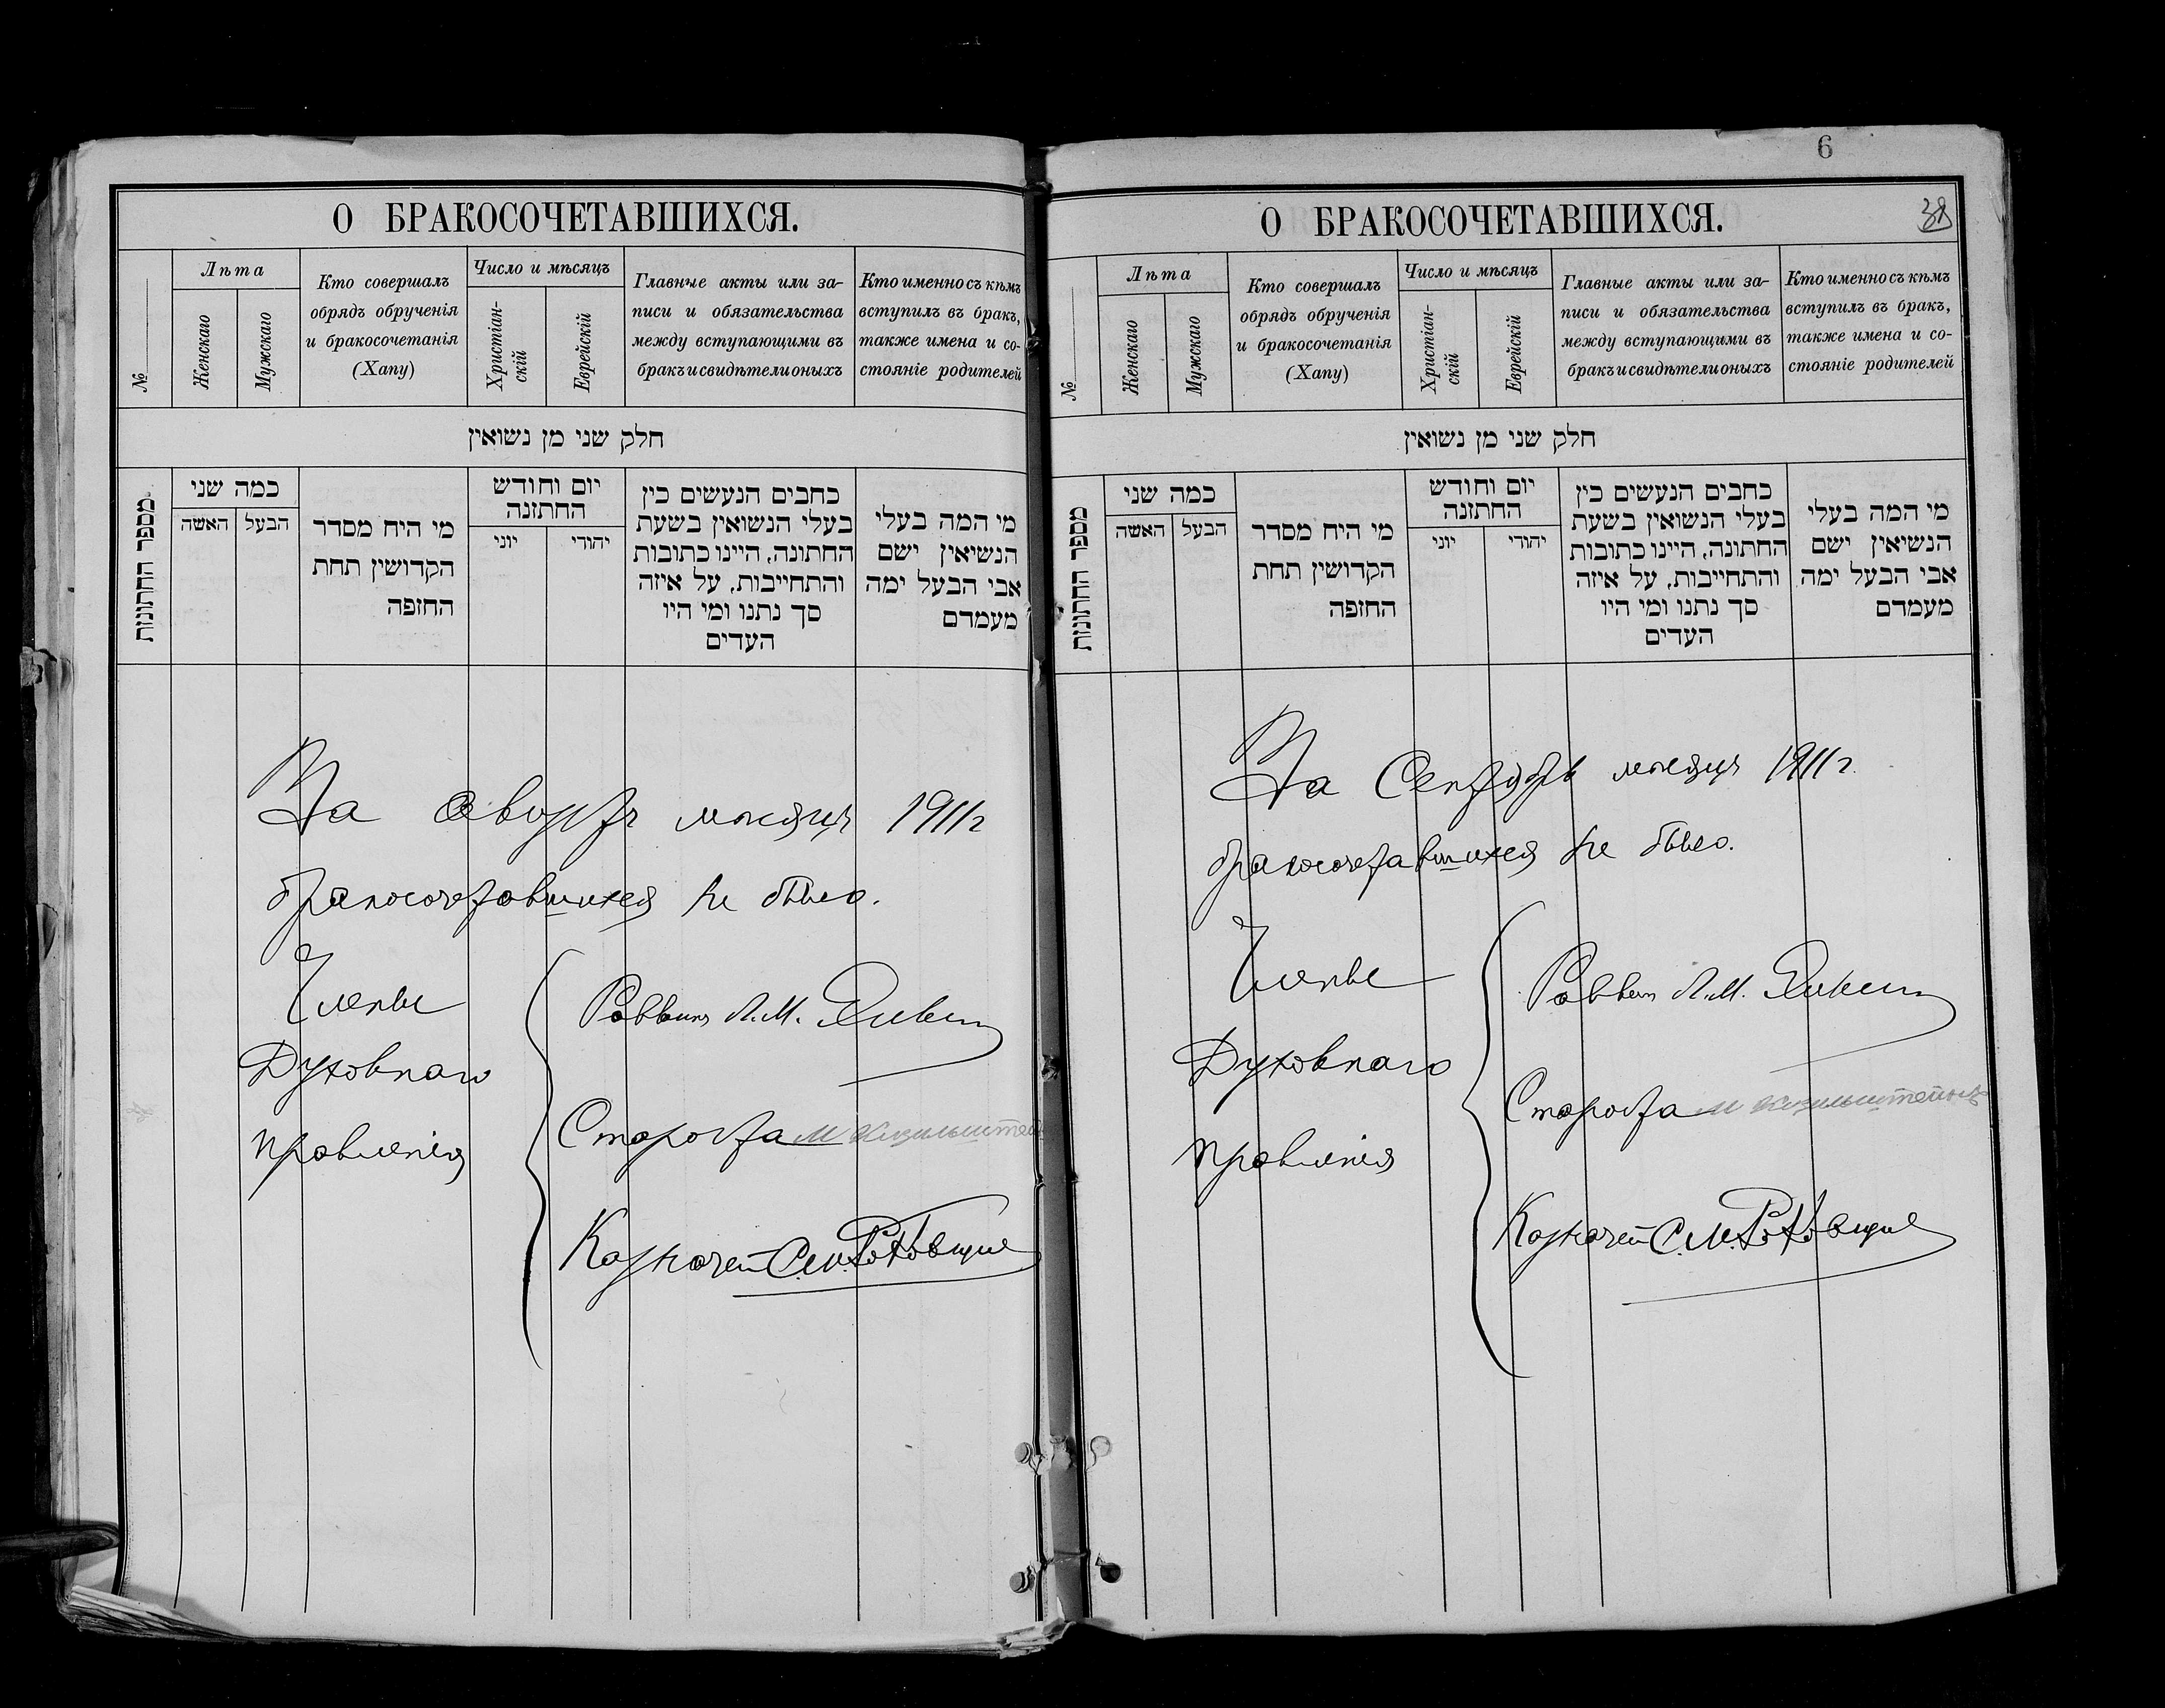 О БРАКОСОЧЕТАВШИХСЯ.
№
Лѣта
Женскаго
Мужскаго
Кто совершалъ
обрядъ обрученія
и бракосочетанія
(Хапу)
Число и мѣсяцъ
Христіан-
скій
Еврейскій
Главные акты или за-
писи и обязательства
между вступающими въ
бракъ и свидѣтели оныхъ
Кто именно съ кѣмъ
вступилъ въ бракъ,
также имена и со-
стояніе родителей
חלק שני מן נשואין
מספר החתונות
כמה שני
האשה
הבעל
מי היח מסדר
הקדושין תחת
החזפה
יום וחודש
החתזנה
יוני
יהודי
כחבים הנעשים כין
בעלי הנשואין בשעת
החתונה, היינו כתובות
והתחייבות, על איזה
סך נתנו ומי היו
העדים
מי המה בעלי
הנשיאין ישם
אבי הבעל ימה
מעמדם
За Августъ мѣсяцъ 1911 г
бракосочетавшихся не было.
Члены
Духовнаго
правленія
Раввинъ Л.М.
Староста М
Казначей С.М.
6
О БРАКОСОЧЕТАВШИХСЯ.
38
№
Лѣта
Женскаго
Мужскаго
Кто совершалъ
обрядъ обрученія
и бракосочетанія
(Хапу)
Число и мѣсяцъ
Христіан-
скій
Еврейскій
Главные акты или за-
писи и обязательства
между вступающими въ
бракъ и свидѣтели оныхъ
Кто именно съ кѣмъ
вступилъ въ бракъ,
также имена и со-
стояніе родителей
חלק שני מן נשואין
מספר החתונות
כמה שני
האשה
הבעל
מי היח מסדר
הקדושין תחת
החזפה
יום וחודש
החתזנה
יוני
יהודי
כחבים הנעשים כין
בעלי הנשואין בשעת
החתונה, היינו כתובות
והתחייבות, על איזה
סך נתנו ומי היו
העדים
מי המה בעלי
הנשיאין ישם
אבי הבעל ימה
מעמדם
За Сентябрь мѣсяцъ 1911 г.
бракосочетавшихся не было.
Члены
Духовнаго
правленія
Раввин Л.М.
Староста М
Казначей С.М.